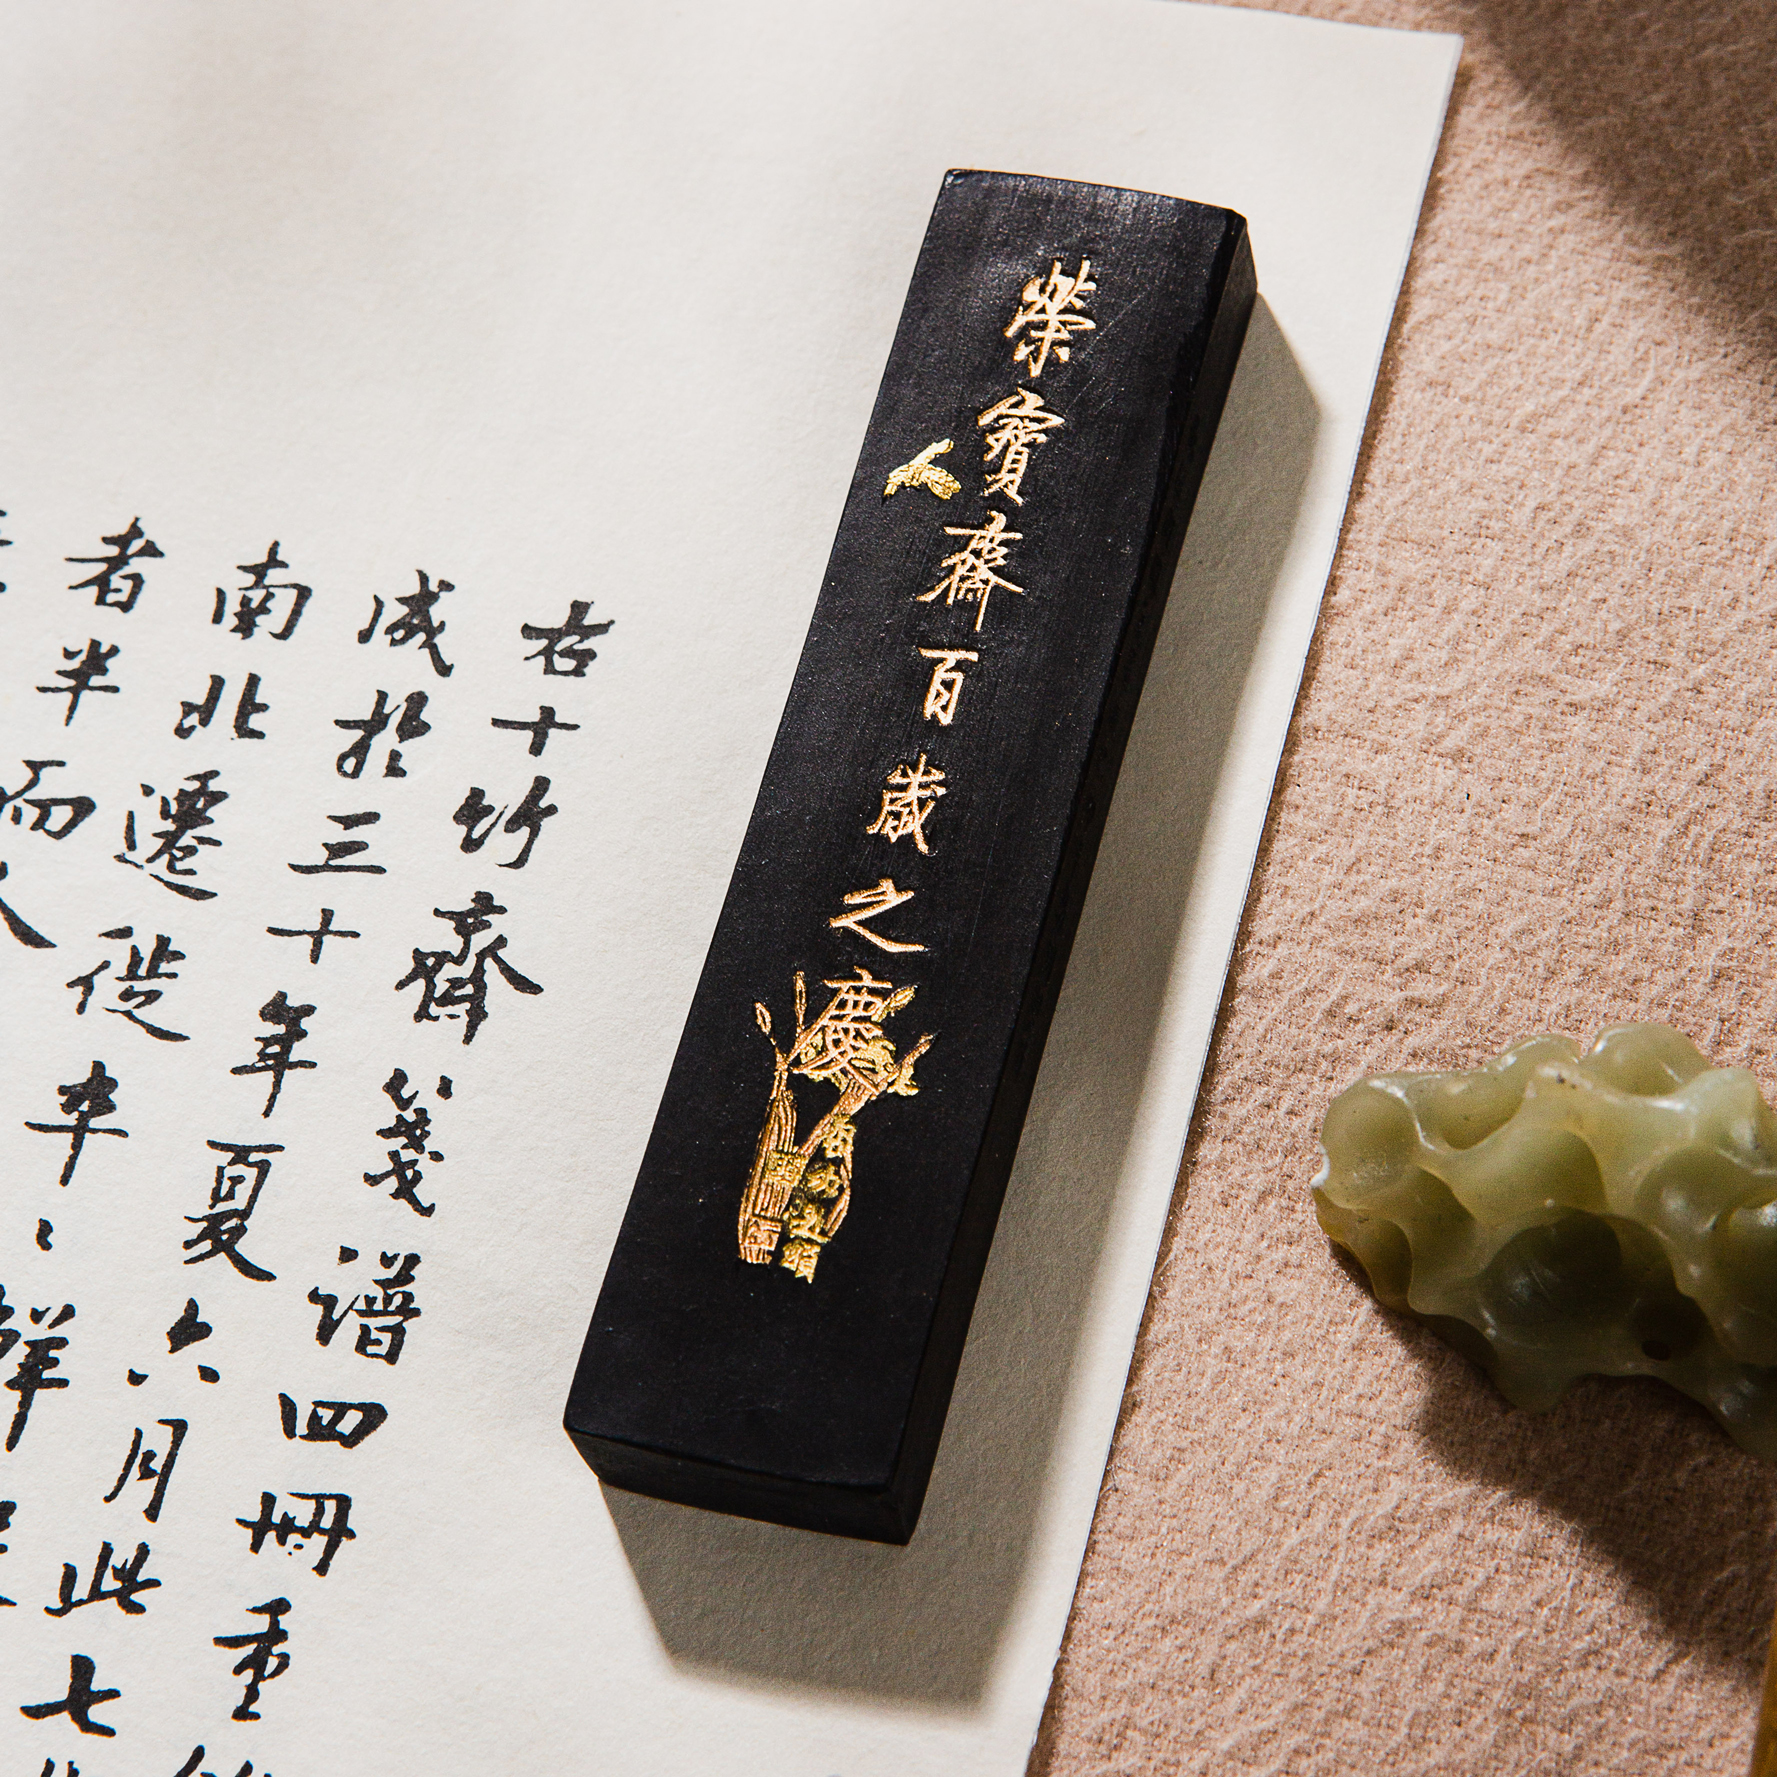 榮寶齋百歲之慶
右十竹齋箋譜四冊重
成於三十年夏六月此七
南北遷徙卒〻鮮
者半而